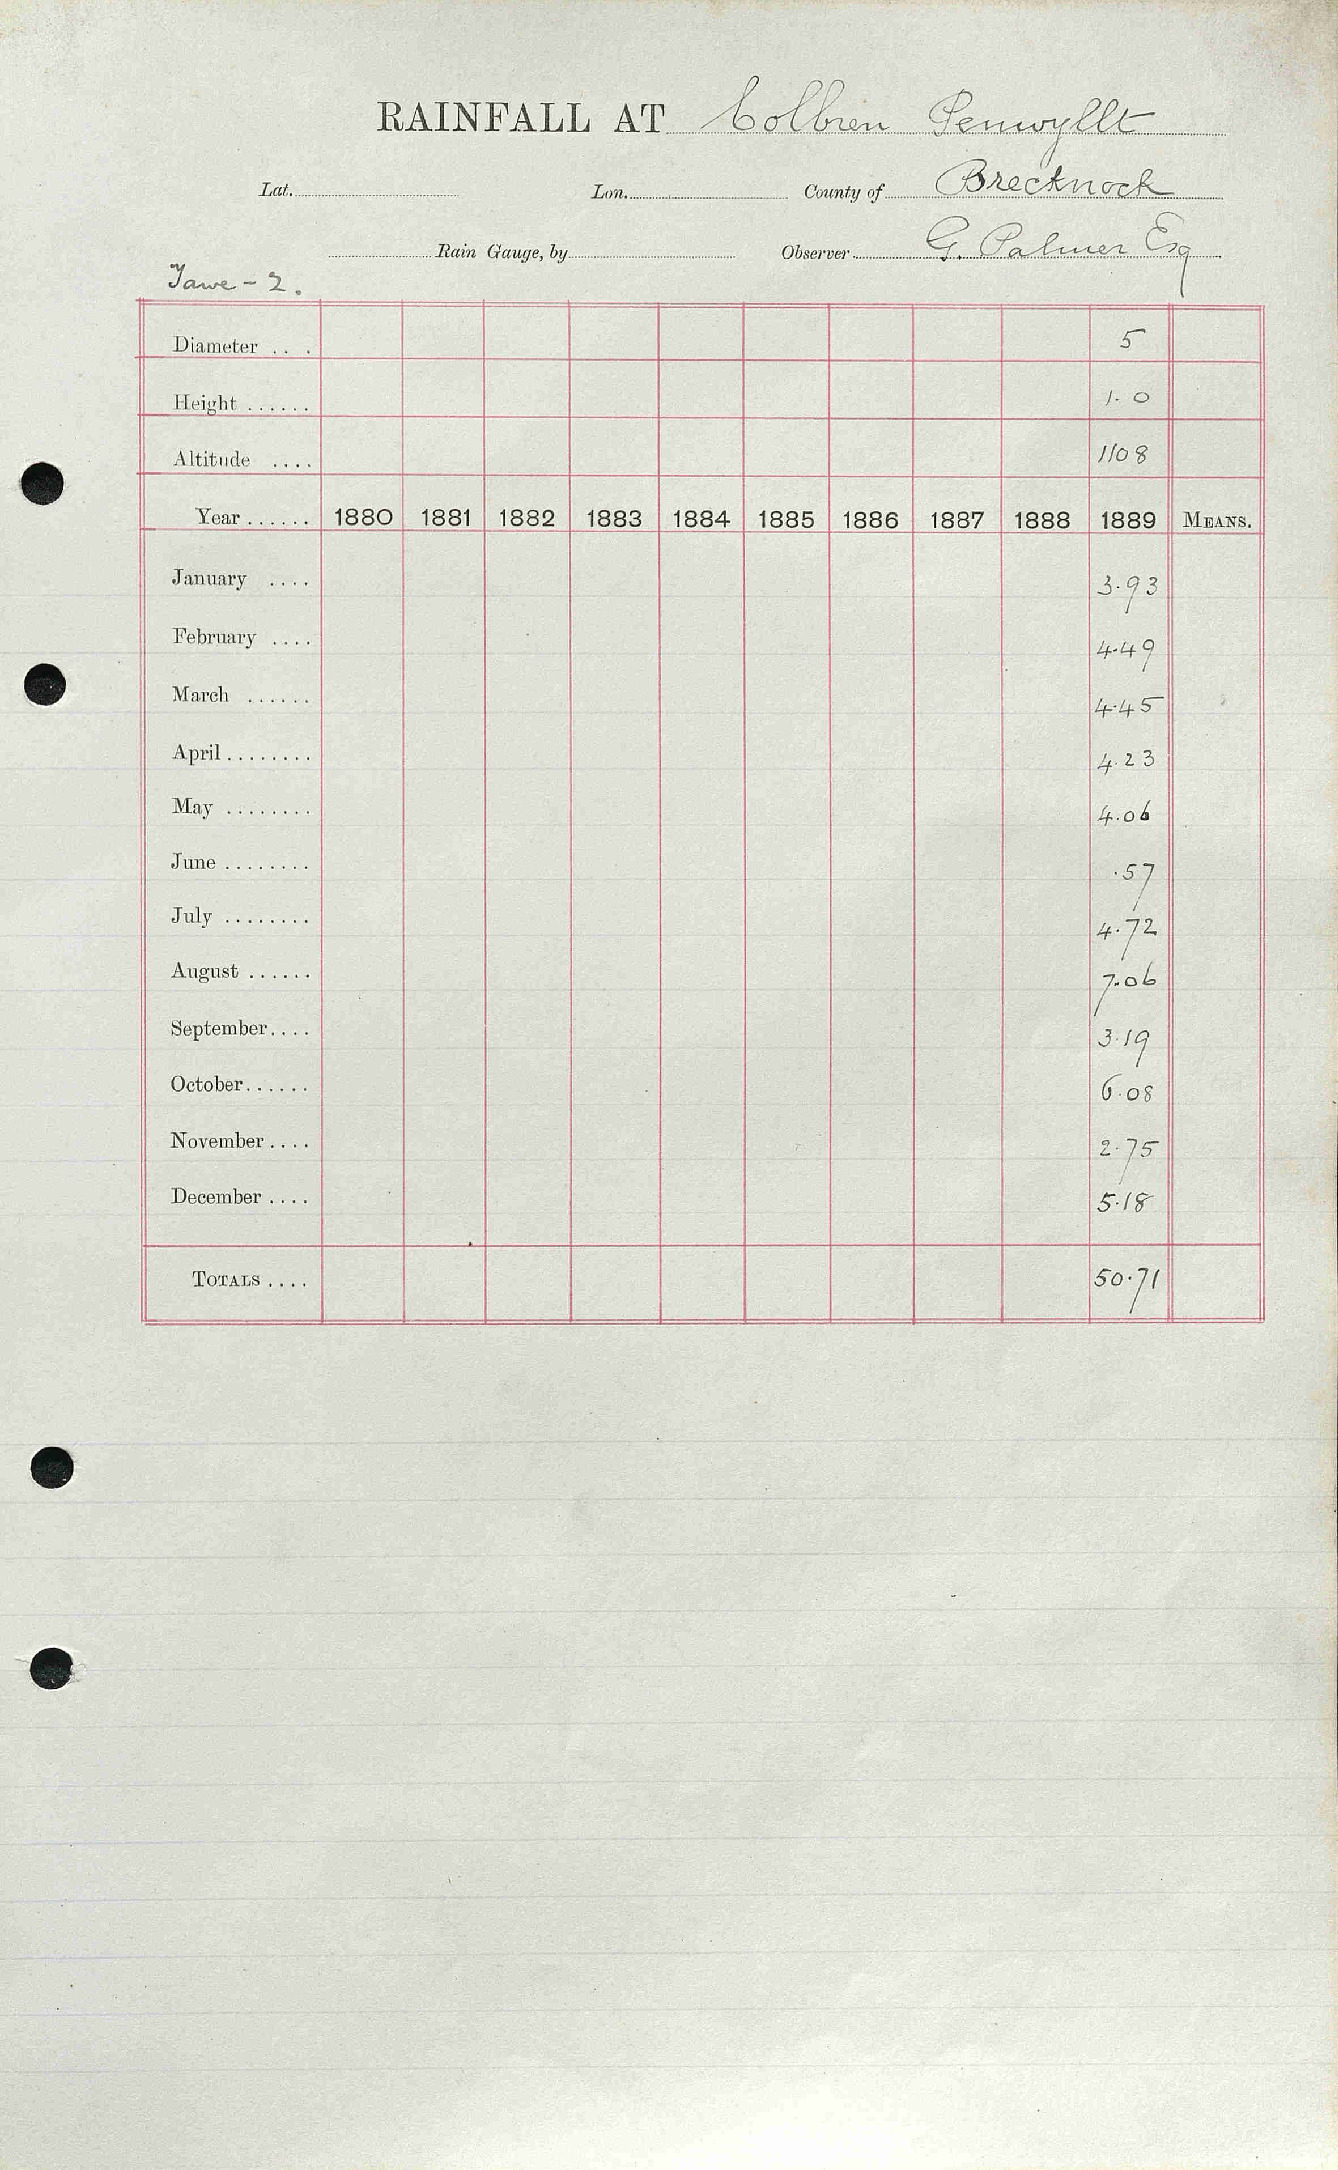 RAINFALL AT Colbren Penwyllt
Lat. Lon. County of Brecknock
Rain Gauge, by Observer G. Palmer Esq
Tawe - 2.
Diameter .. . 5
Height ...... 1.0
Altitude .... 1108
Year ...... 1880 1881 1882 1883 1884 1885 1886 1887 1888 1889 MEANS.
January .... 3.93
February .... 4.49
March ...... 4.45
April ........ 4.23
May ........ 4.06
June ........ .57
July ........ 4.72
August ...... 7.06
September.... 3.19
October...... 6.08
November .... 2.75
December .... 5.18
TOTALS .... 50.71